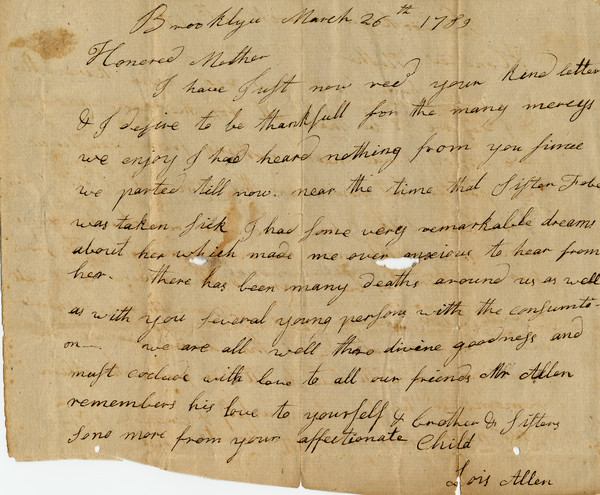 Brooklyn March 26th 1789
Honored Mother
I have Just now recd your kind letter
& I desire to be thankfull for the many mercys
we enjoy I had heard nothing from you since
we parted till now. near the time that Sister
was taken sick I had some very remarkable dreams
about her which made me over anxious to hear from
her. there has been many deaths around us as well
as with you several young persons with the consumti-
on— we are all well thro divine goodness and
must coclude with love to all our friends Mr Allen
remembers his love to yourself & brother & sisters
so no more from your affectionate Child
Lois Allen